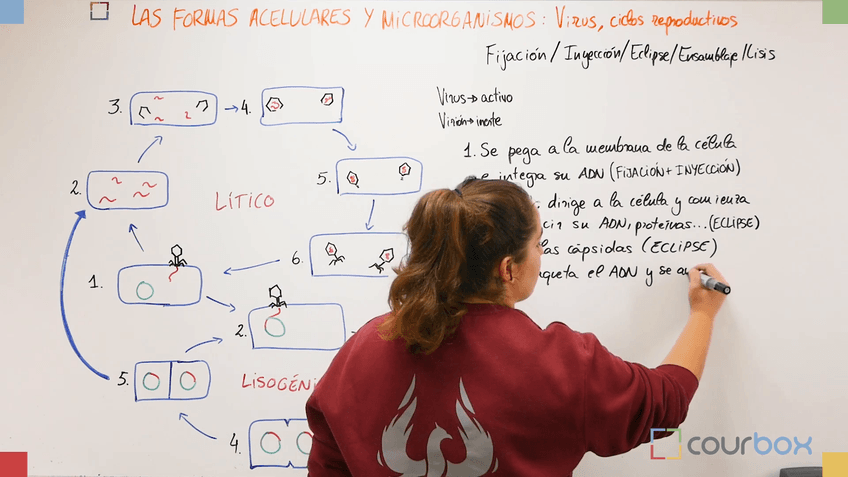 LAS FORMAS ACELULARES Y MICROORGANISMOS: VIRUS, ciclos reproductivos
Fijación / Inyección / Eclipse / Ensamblaje / Lisis
Virus → activo
Virión → inerte
1. Se pega a la membrana de la célula
e integra su ADN (FIJACIÓN + INYECCIÓN)
dirige a la célula y comienza
su ADN, proteínas... (ECLIPSE)
las cápsidas (ECLIPSE)
el ADN y se
3.
4.
2.
5.
LÍTICO
1.
6.
2.
5.
LISOGÉNI
4.
courbox